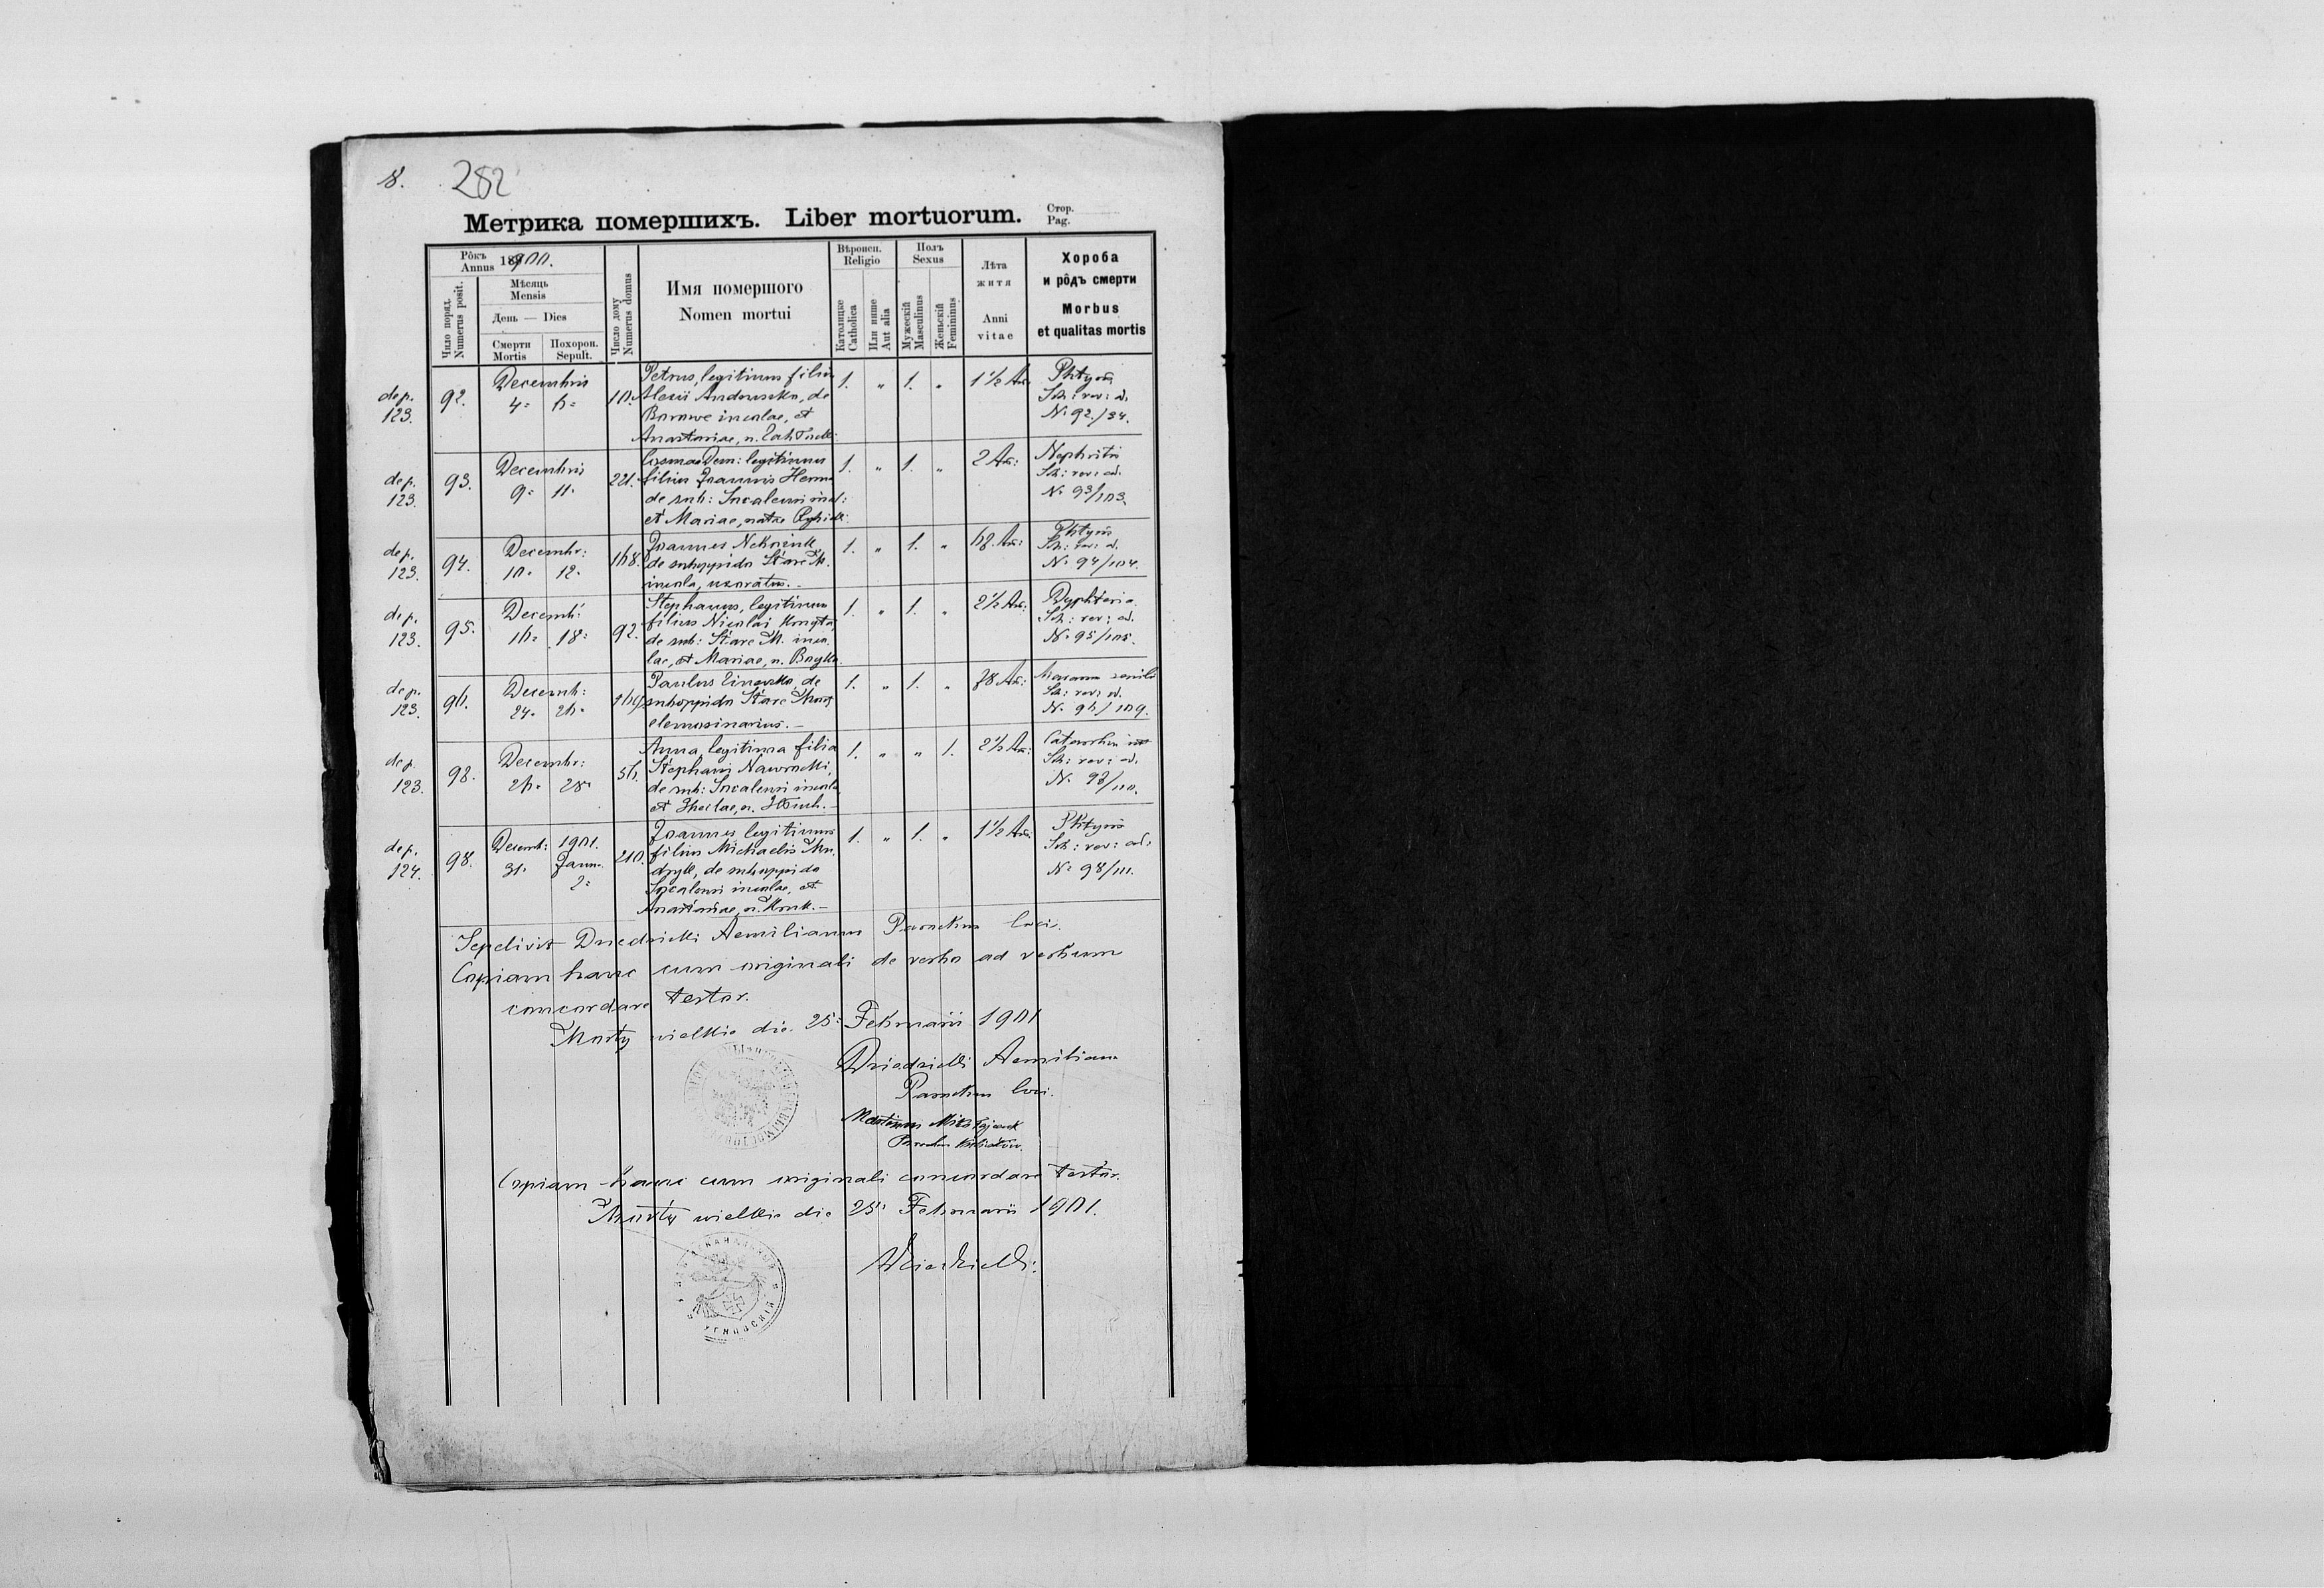 8. 282
Метрика помершихъ. Liber mortuorum.
Стор.
Pag.
Рôкъ
Annus 1900.
Мѣсяць
Mensis
День — Dies
Смерти
Mortis
Похорон.
Sepult.
Чило поряд.
Numerus posit.
Число дому
Numerus domus
Имя помершого
Nomen mortui
Вѣроисп.
Religio
Католицке
Catholica
Или инше
Aut alia
Полъ
Sexus
Мужескій
Masculinus
Женьскій
Femininus
Лѣта
житя
Anni
vitae
Хороба
и рôдъ смерти
Morbus
et qualitas mortis
dep. 123. 92. Decembris 4. 6. 10. 1. " 1. " 1 1/2 An:
Petrus, legitimus filius
Alexii
incolae, et
Anastasiae, n.
Phtysis
Sch: rev: ad.
N. 92./84.
dep. 123. 93. Decembris 9. 11. 221. 1. " 1. " 2 An:
Cosmas Dem: legitimus
filius Joannis
de sub: incol:
et Mariae, natae
Nephritis
Sch: rev: ad.
N. 93/103.
dep. 123. 94. Decembr: 10. 12. 168. 1. " 1. " An:
Joannes
de suboppido Stare M.
incola, uxoratus.—
Phtysis
Sch: rev: ad.
N. 94/104.
dep. 123. 95. Decemb: 16. 18. 92. 1. " 1. " 2 1/2 An:
Stephanus, legitimus
filius Nicolai
de sub: Stare M. inco
lae, et Mariae, n.
Dyphteria
Sch: rev: ad.
N. 95/105.
dep. 123. 96. Decemb: 24. 26. 1. " 1. " 78 An:
Paulus de
suboppido Stare Mosty
elemosinarius.—
Marasmus senilis
Sch: rev: ad.
N. 96/109.
dep. 123. 98. Decembr: 26. 28. 56. 1. " " 1. 2 1/2 An:
Anna, legitima filia
Stephani Nawrocki,
de sub: incolae
et Theclae, n.
Sch: rev: ad.
N. 98/110.
dep. 124. 98. Decemb: 31. 1901. Janu. 2. 210. 1. " 1. " 1 1/2 An:
Joannes legitimus
filius Michaelis Mu
dryk, de suboppido
incolae, et
Anastasiae, n.
Phtysis
Sch: rev: ad.
N. 98/111.
Sepelivit Dziedzicki Aemilianus Parochus loci.
Copiam hanc cum originali de verbo ad verbum
concordare testor.
Mosty wielkie die 25. Februarii 1901
Dziedzicki Aemilianus
Parochus loci.
Copiam hanc cum originali concordare testor.
Mosty wielkie die 25. Februarii 1901.